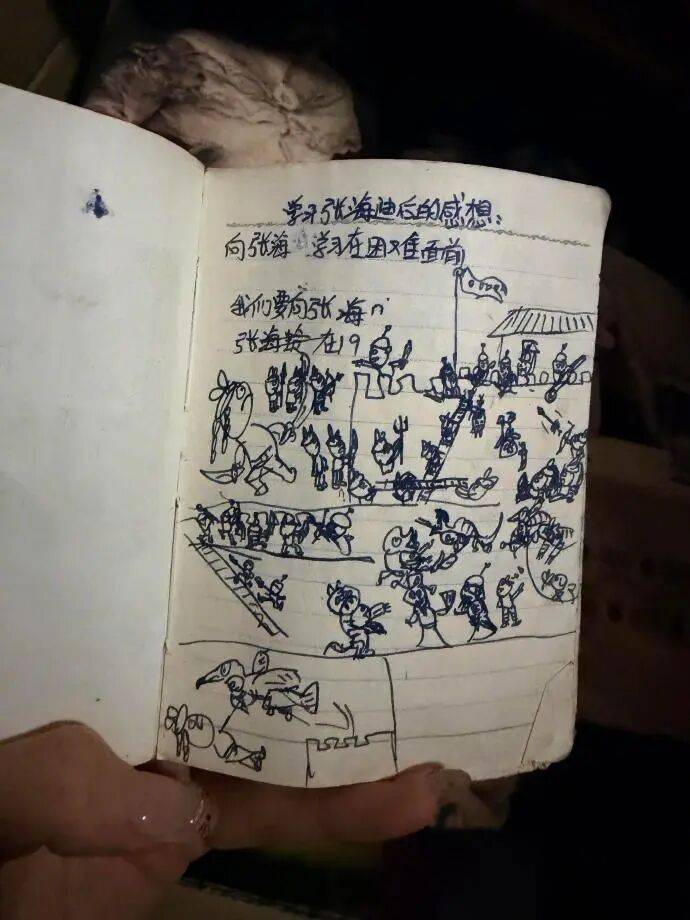 学习张海迪后的感想:
向张海 学习在困难面前
我们要向张海
张海 在19